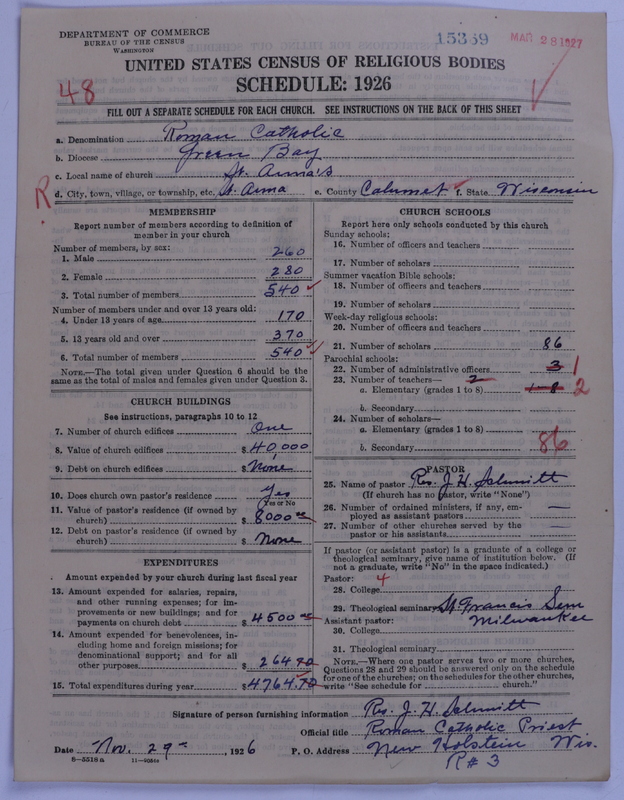 DEPARTMENT OF COMMERCE
BUREAU OF THE CENSUS
WASHINGTON
15339
MAR 28 1927
UNITED STATES CENSUS OF RELIGIOUS BODIES
SCHEDULE: 1926
48
FILL OUT A SEPARATE SCHEDULE FOR EACH CHURCH. SEE INSTRUCTIONS ON THE BACK OF THIS SHEET
a. Denomination Roman Catholic
b. Diocese Green Bay
c. Local name of church St. Anna's
R d. City, town, village, or township, etc. St. Anna e. County Calumet f. State Wisconsin
MEMBERSHIP
Report number of members according to definition of
member in your church
Number of members, by sex:
1. Male 260
2. Female 280
3. Total number of members 540
Number of members under and over 13 years old:
4. Under 13 years of age 170
5. 13 years old and over 370
6. Total number of members 540
NOTE.—The total given under Question 6 should be
same as the total of males and females given under Question 3.
CHURCH BUILDINGS
See instructions, paragraphs 10 to 12
7. Number of church edifices One
8. Value of church edifices $40,000
9. Debt on church edifices $None
10. Does church own pastor's residence Yes
(Yes or No)
11. Value of pastor's residence (if owned by
church) $8000
12. Debt on pastor's residence (if owned by
church) $None
EXPENDITURES
Amount expended by your church during last fiscal year
13. Amount expended for salaries, repairs,
and other running expenses; for im-
provements or new buildings; and for
payments on church debt $4500
14. Amount expended for benevolences, in-
cluding home and foreign missions; for
denominational support; and for all
other purposes $264.70
15. Total expenditures during year $4764.70
CHURCH SCHOOLS
Report here only schools conducted by this church
Sunday schools:
16. Number of officers and teachers
17. Number of scholars
Summer vacation Bible schools:
18. Number of officers and teachers
19. Number of scholars
Week-day religious schools:
20. Number of officers and teachers
21. Number of scholars 86
Parochial schools:
22. Number of administrative officers 3 1
23. Number of teachers— 2
a. Elementary (grades 1 to 8) 1-8 2
b. Secondary
24. Number of scholars—
a. Elementary (grades 1 to 8) 86
b. Secondary
PASTOR
25. Name of pastor Rev. J. H. Schmitt
(If church has no pastor, write "None")
26. Number of ordained ministers, if any, em-
ployed as assistant pastors —
27. Number of other churches served by the
pastor or his assistants —
If pastor (or assistant pastor) is a graduate of a college or
theological seminary, give name of institution below. (If
not a graduate, write "No" in the space indicated.)
Pastor: 4
28. College
29. Theological seminary St. Francis Sem
Assistant pastor: Milwaukee
30. College
31. Theological seminary
NOTE.—Where one pastor serves two or more churches,
Questions 28 and 29 should be answered only on the schedule
for one of the churches; on the schedules for the other churches,
write "See schedule for church."
Signature of person furnishing information Rev. J. H. Schmitt
Official title Roman Catholic Priest
Date Nov. 29, 1926 P. O. Address New Holstein Wis.
R#3
8-5518a